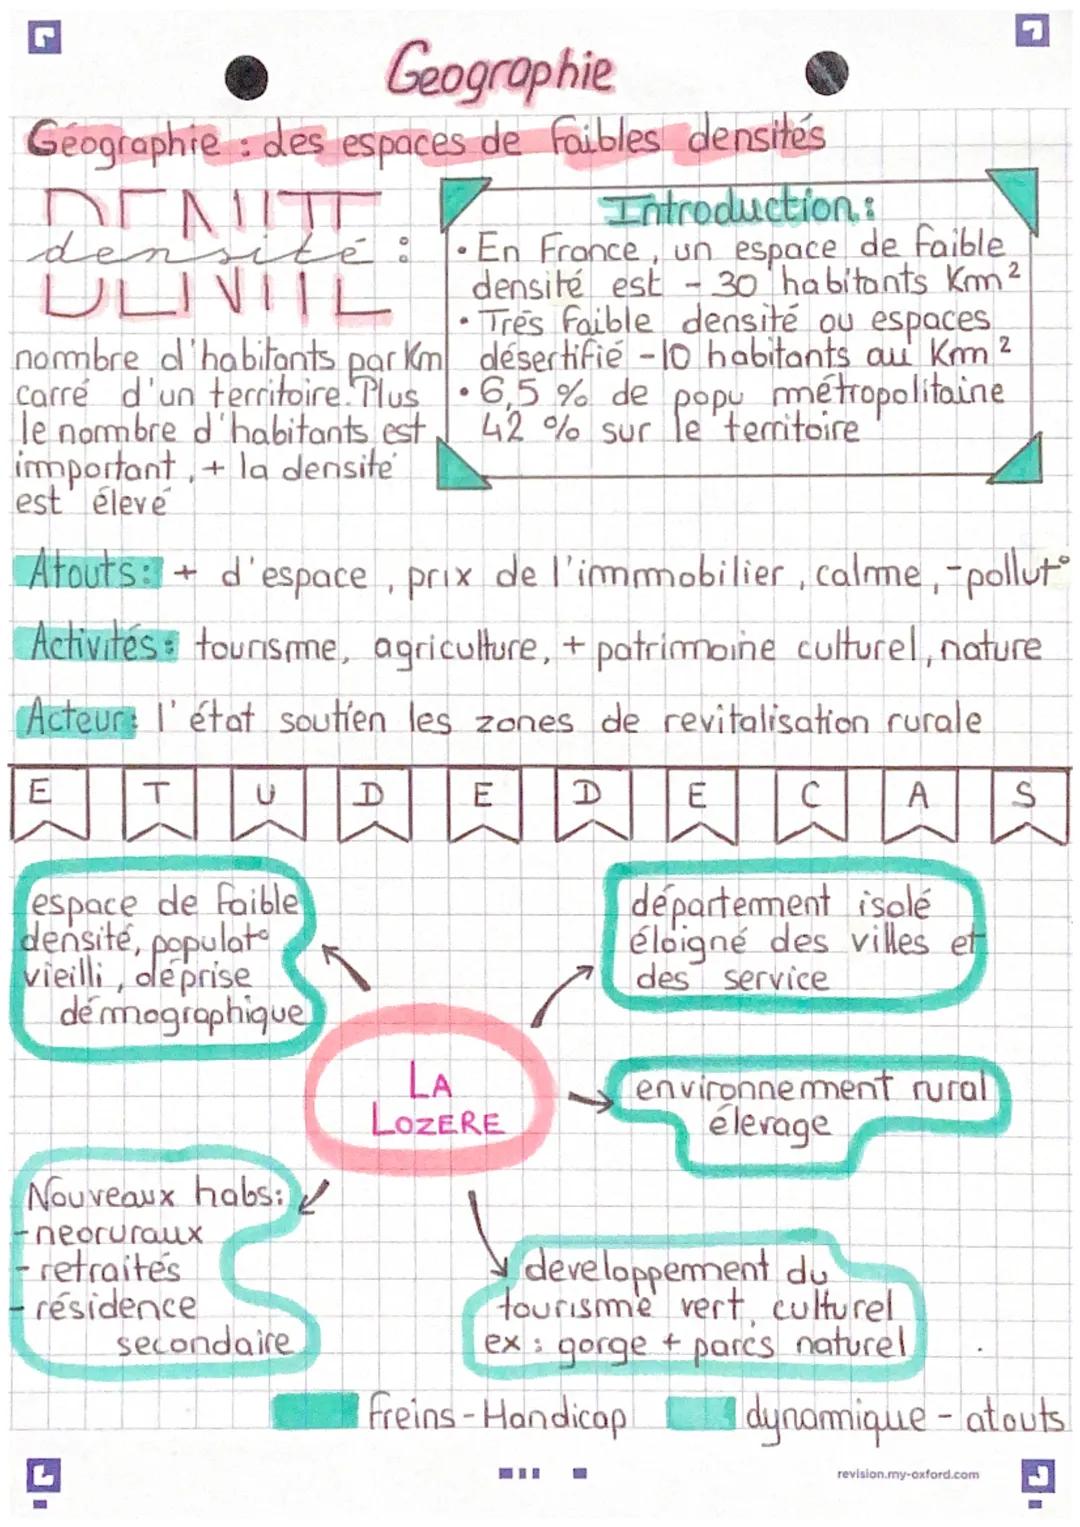 Geographie
Géographie : des espaces de faibles densités
densité :
nombre d'habitants par Km
carré d'un territoire. Plus
le nombre d'habitants est
important, + la densité
est élevé
Introduction :
• En France, un espace de faible
densité est - 30 habitants Km²
• Très faible densité ou espaces
désertifié -10 habitants au Km²
• 6,5 % de popu métropolitaine
42 % sur le territoire
Atouts : + d'espace, prix de l'immobilier, calme, -pollut°
Activités : tourisme, agriculture, + patrimoine culturel, nature
Acteur : l'état soutien les zones de revitalisation rurale
E T U D E D E C A S
espace de faible
densité, populat°
vieilli, déprise
démographique
département isolé
éloigné des villes et
des service
LA
LOZERE
environnement rural
élevage
Nouveaux habs :
- neoruraux
- retraités
- résidence
secondaire
developpement du
tourisme vert, culturel
ex : gorge + parcs naturel
freins - Handicap
dynamique - atouts
revision.my-oxford.com